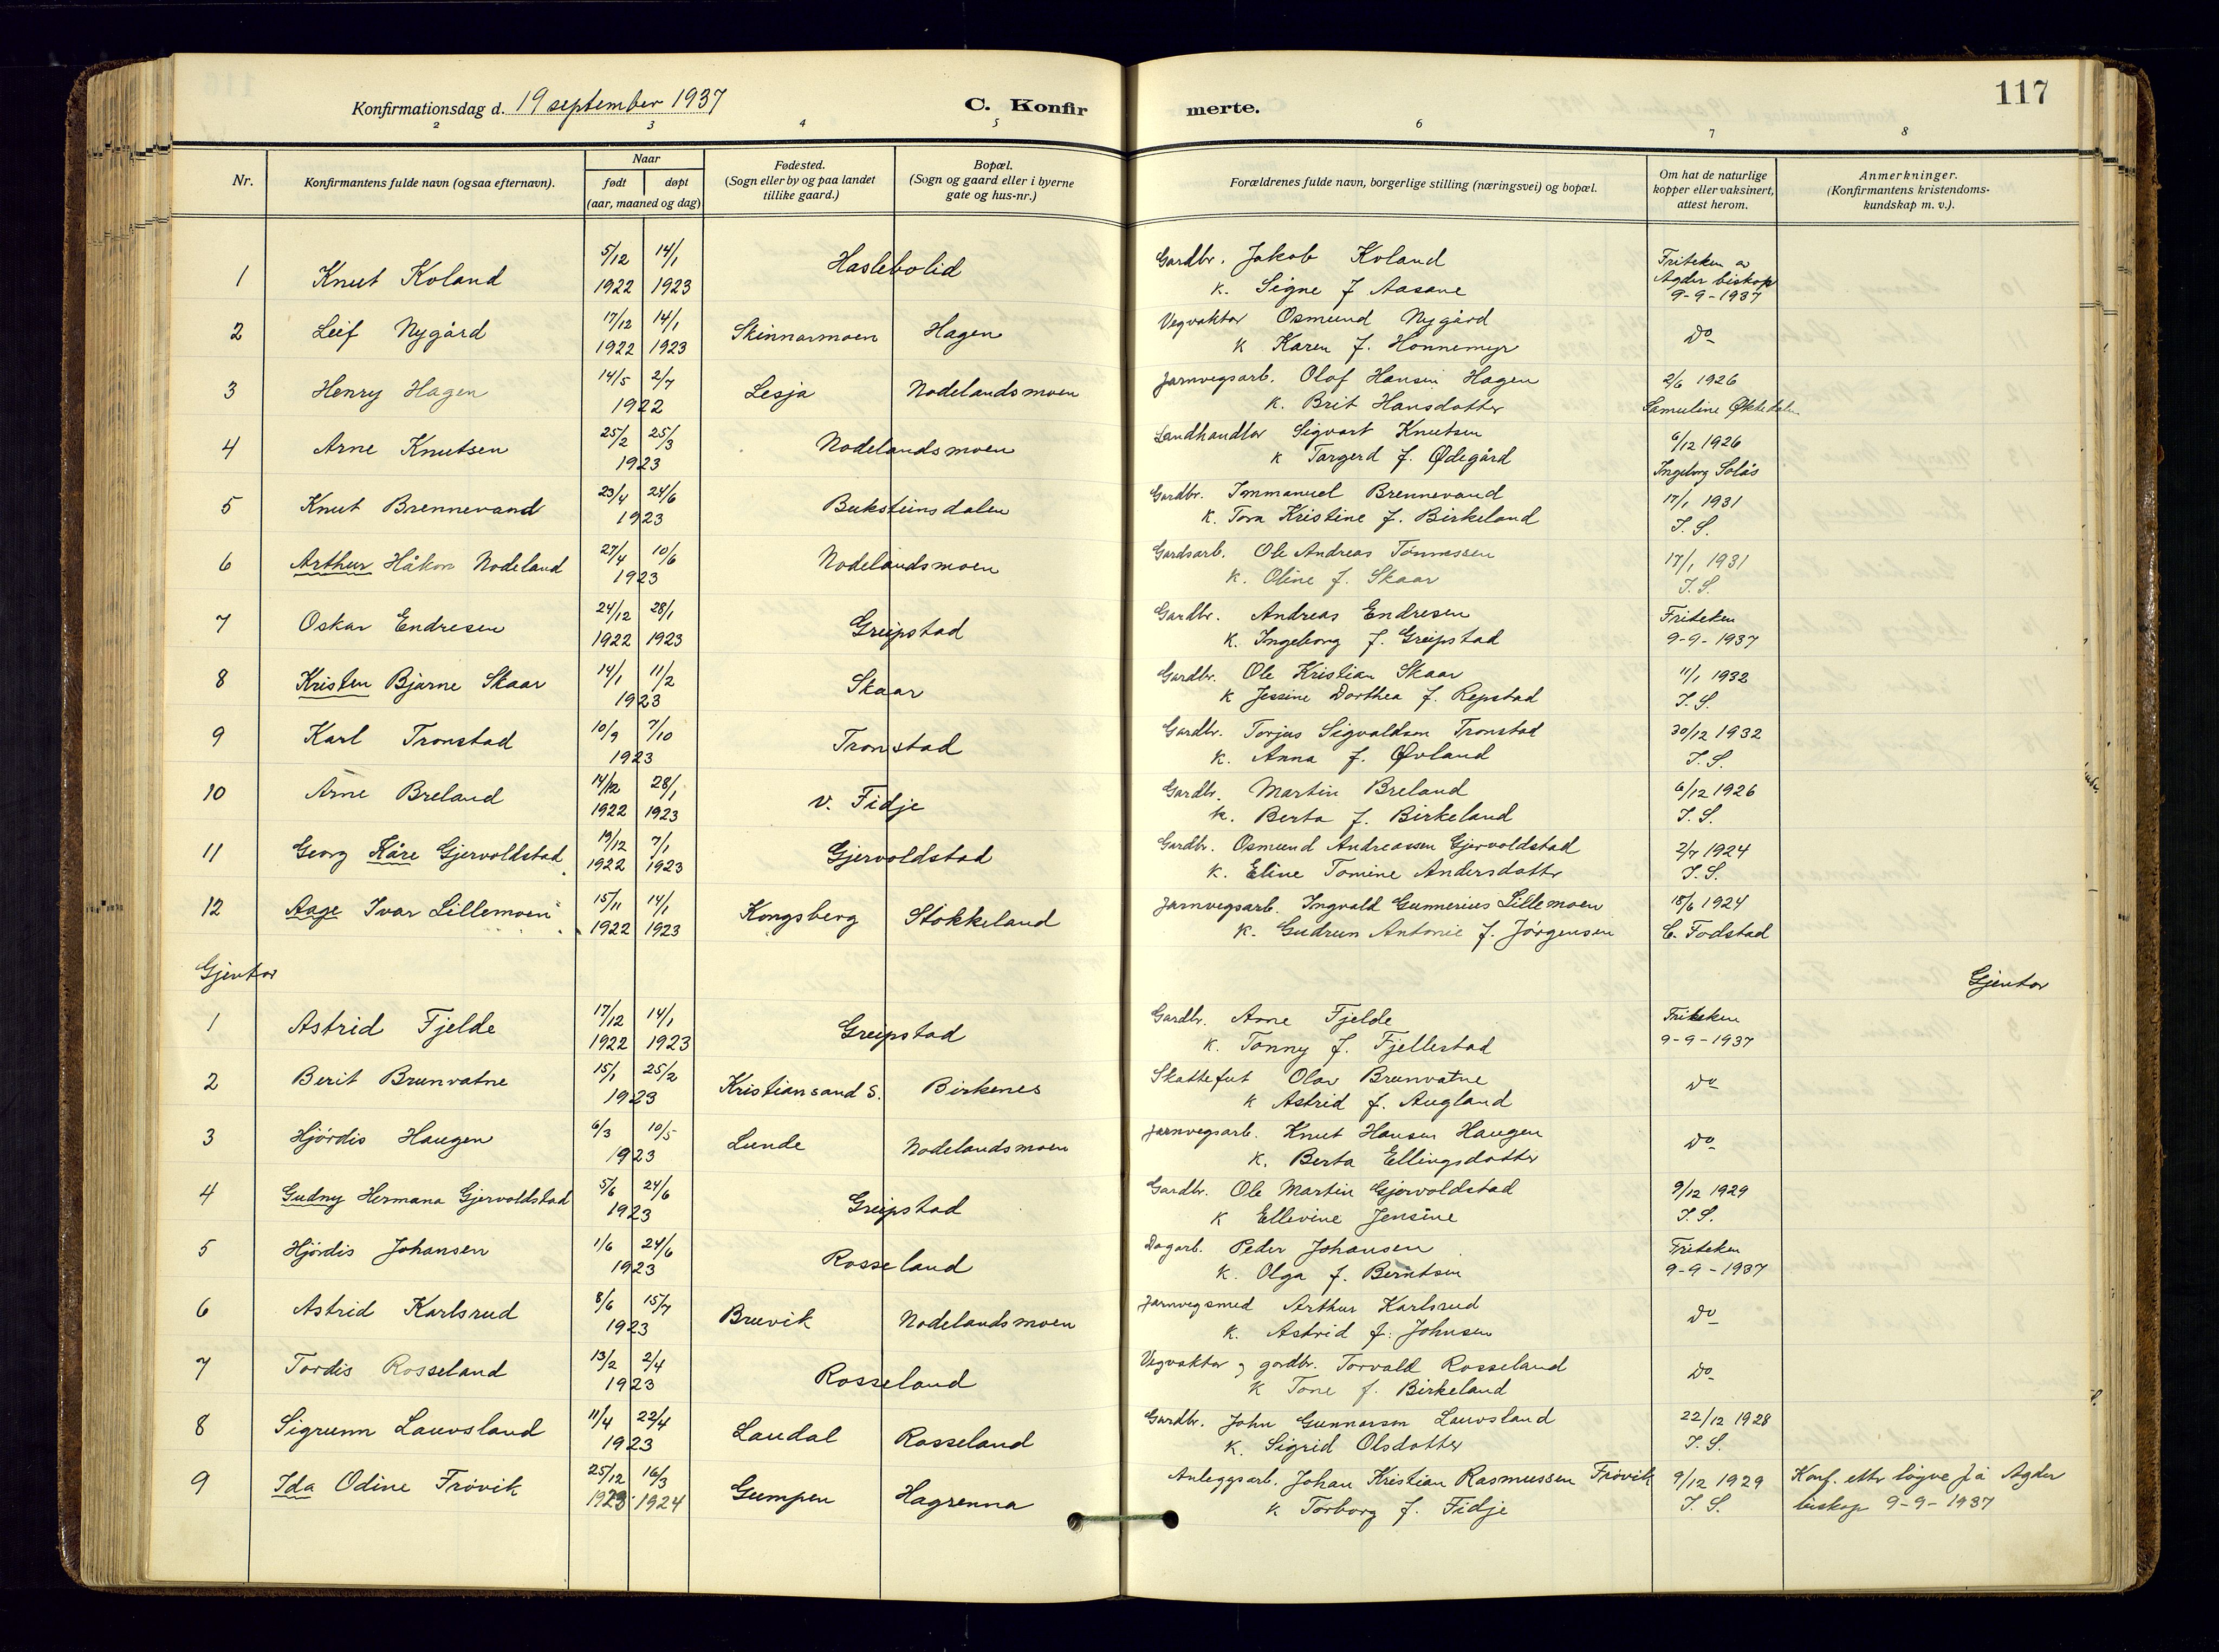 117
Konfirmationsdag d. 19 september 1937 C. Konfir merte.
2 3 4 5 6 7 8
Nr. Konfirmantens fulde navn (ogsaa efternavn). Naar født døpt (aar, maaned og dag) Fødested. (Sogn eller by og paa landet tillike gaard.) Bopæl. (Sogn og gaard eller i byerne gate og hus-nr.) Forældrenes fulde navn, borgerlige stilling (næringsvei) og bopæl. Om hat de naturlige kopper eller vaksinert, attest herom. Anmerkninger. (Konfirmantens kristendoms-kundskap m. v.).
1 Knut Koland 5/12 1922 14/1 1923 Haslebolid Gardbr. Jakob Koland
k. Signe f Aasane Friteken av Agder biskop 9-9-1937
2 Leif Nygård 17/12 1922 14/1 1923 Skinnarmoen Hagen Vegvaktar Osmund Nygård
k Karen f. Honnemyr Do
3 Henry Hagen 14/5 2/7 1922 Lesja Nodelandsmoen Jarnvegsarb. Olof Hansen Hagen
k. Brit Hansdotter 2/6 1926 Samuline
4 Arne Knutsen 25/2 25/3 1923 Nodelandsmoen Landhandlar Sigvart Knutsen
k Targerd f. Ødegård 6/12 1926 Ingeborg Solås
5 Knut Brennevand 23/4 24/6 1923 Buksteinsdalen Gardbr. Immanuel Brennevand
k. Tora Kristine f. Birkeland 17/1 1931 I. S.
6 Arthur Håkon Nodeland 27/4 10/6 1923 Nodelandsmoen Gardsarb. Ole Andreas Tønnessen
k. Oline f. Skaar 17/1 1931 I. S.
7 Oskar Endresen 24/12 1922 28/1 1923 Greipstad Gardbr. Andreas Endresen
k. Ingeborg f. Greipstad Friteken 9-9-1937
8 Kristen Bjarne Skaar 14/1 11/2 1923 Skaar Gardbr. Ole Kristian Skaar
k Jessine Dorthea f. Repstad 11/1 1932 I. S.
9 Karl Tronstad 10/9 7/10 1923 Tronstad Gardbr. Torjus Sigvaldsen Tronstad
k. Anna f. Øvland 30/12 1932 I. S.
10 Arne Breland 14/12 1922 28/1 1923 v. Fidje Gardbr. Martin Breland
k. Berta f. Birkeland 6/12 1926 I. S.
11 Georg Kåre Gjervoldstad 19/12 1922 7/1 1923 Gjervoldstad Gardbr. Osmund Andreassen Gjervoldstad
k. Eline Tomine Andersdotter 2/7 1924 I. S.
12 Aage Ivar Lillemoen 15/11 1922 14/1 1923 Kongsberg Stokkeland Jarnvegsarb. Ingvald Gunnerius Lillemoen
k. Gudrun Antonie f. Jørgensen 18/6 1924 C. Fodstad
Gjentor Gjentor
1 Astrid Fjelde 17/12 1922 14/1 1923 Greipstad Gardbr. Arne Fjelde
k. Tonny f. Fjellestad Friteken 9-9-1937
2 Berit Brunvatne 15/1 25/2 1923 Kristiansand S. Birkenes Skattefut Olav Brunvatne
k Astrid f. Augland Do
3 Hjørdis Haugen 6/3 10/5 1923 Lunde Nodelandsmoen Jarnvegsarb. Knut Hansen Haugen
k. Berta Ellingsdotter Do
4 Gudny Hermana Gjervoldstad 5/6 24/6 1923 Greipstad Gardbr. Ole Martin Gjervoldstad
k Ellevine Jensine 9/12 1929 I. S.
5 Hjørdis Johansen 1/6 24/6 1923 Rosseland Dagarb. Peder Johansen
k. Olga f. Berntsen Friteken 9-9-1937
6 Astrid Karlsrud 8/6 15/7 1923 Bruvik Nodelandsmoen Jarnvegsmed Arthur Karlsrud
k. Astrid f. Johnsen Do
7 Tordis Rosseland 13/2 2/4 1923 Rosseland Vegvaktar og gardbr. Torvald Rosseland
k Tone f. Birkeland Do
8 Sigrunn Lauvsland 11/4 22/4 1923 Laudal Rosseland Gardbr. John Gunnarsen Lauvsland
k. Sigrid Olsdotter 22/12 1928 I. S.
9 Ida Odine Frøvik 25/12 1923 16/3 1924 Gumpen Hagrenna Anleggsarb. Johan Kristian Rasmussen Frøvik
k Torborg f. Fidje 9/12 1929 I. S. Konf. etter løyve frå Agder biskop 9-9-1937